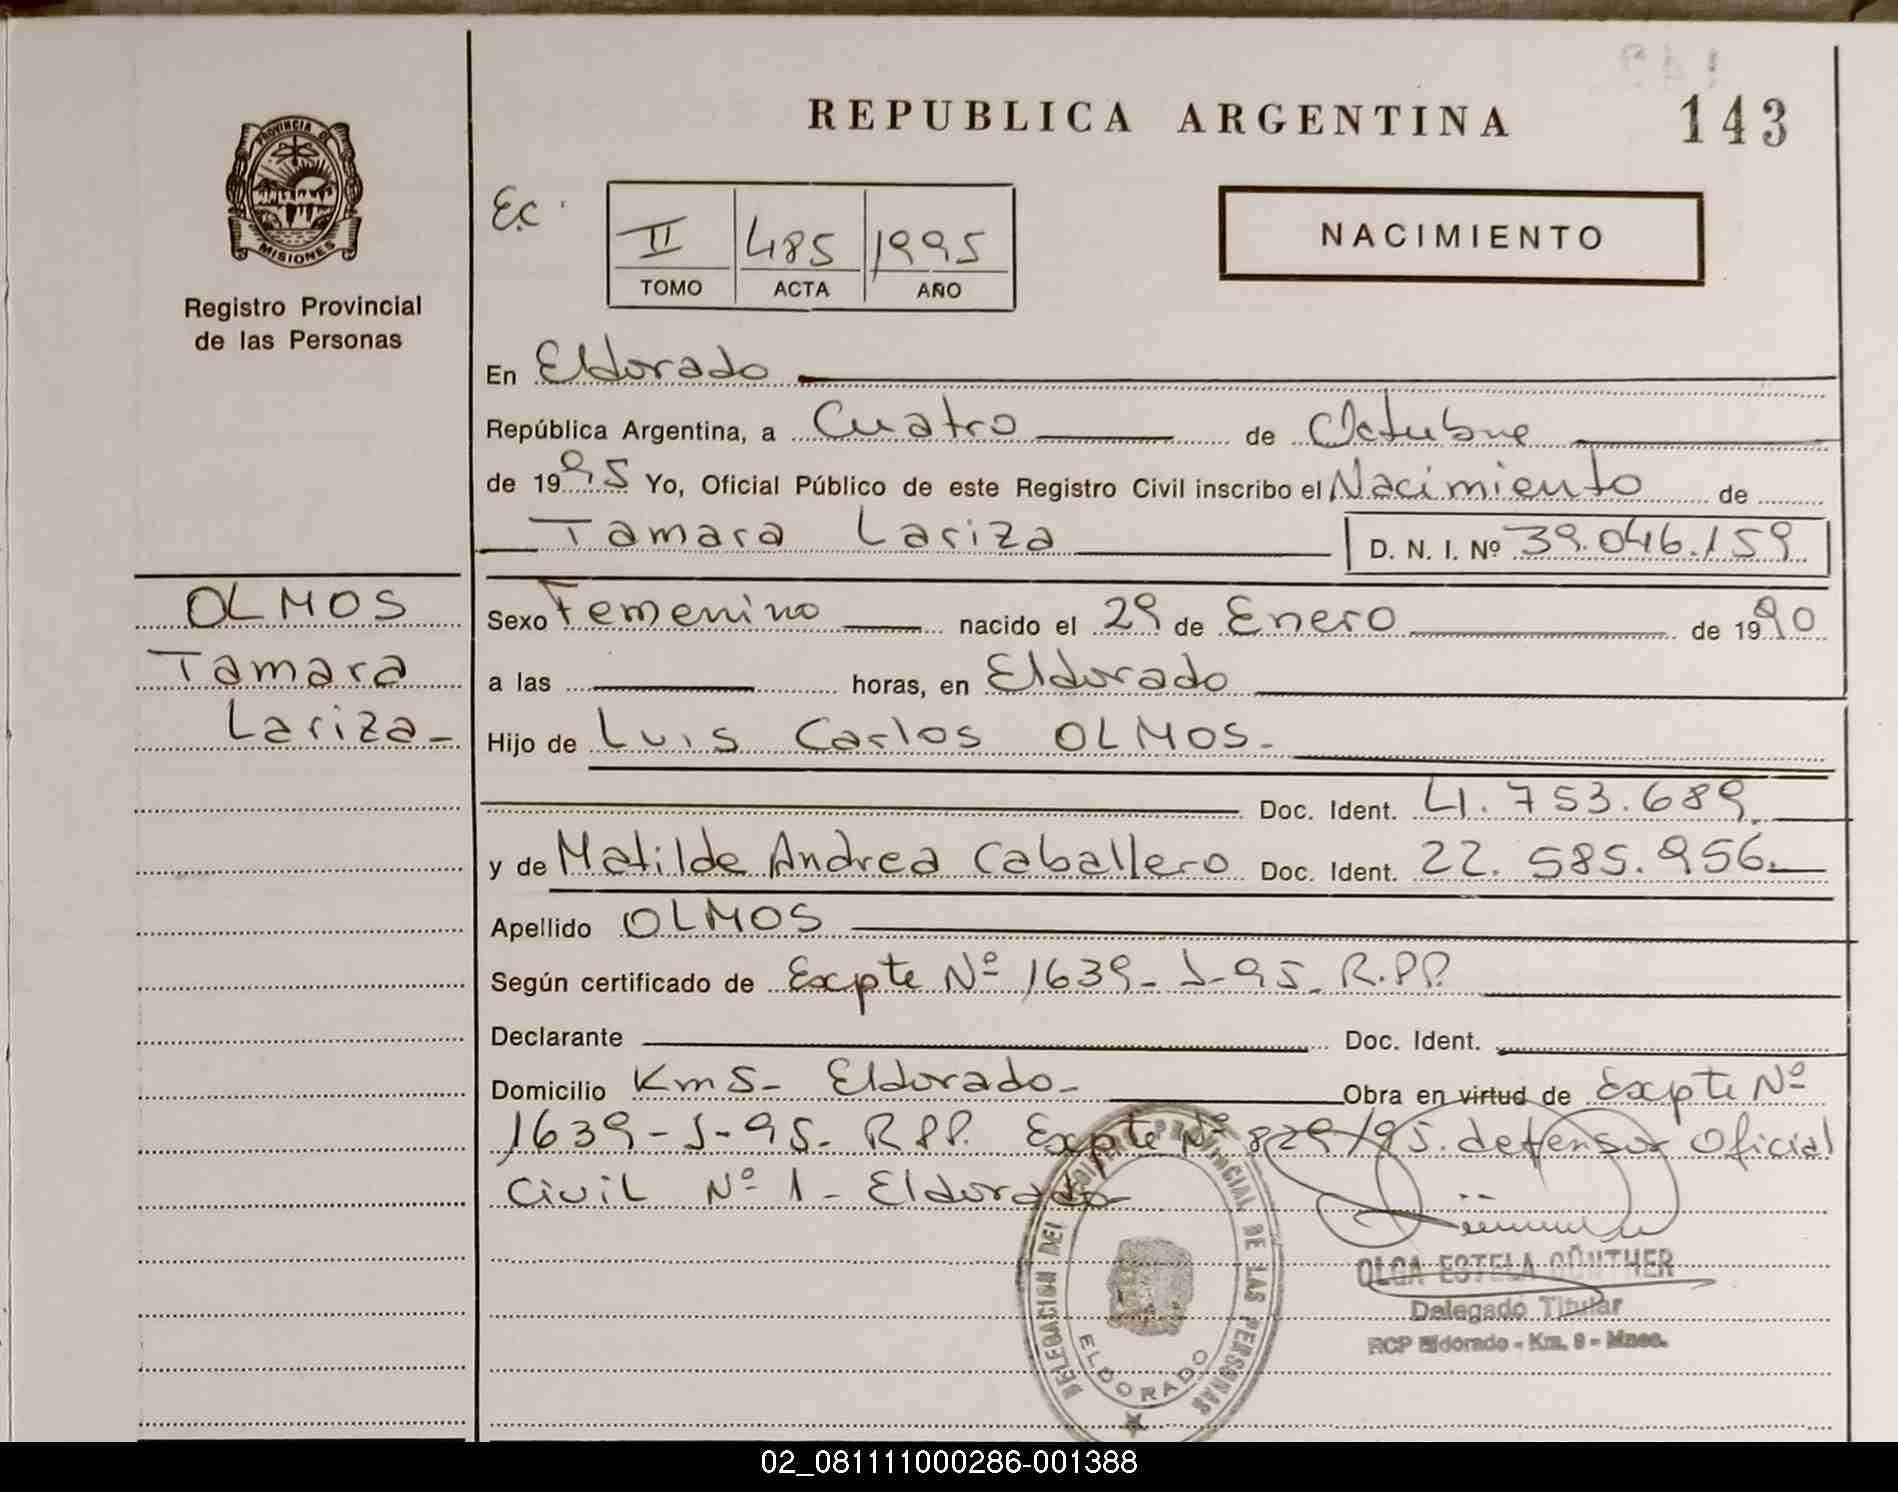 REPUBLICA ARGENTINA
143
PROVINCIA DE
MISIONES
Registro Provincial
de las Personas
E.C.
II 485 1995
TOMO ACTA AÑO
NACIMIENTO
En Eldorado
República Argentina, a Cuatro de Octubre
de 1995 Yo, Oficial Público de este Registro Civil inscribo el Nacimiento de
Tamara Lariza D. N. I. Nº 39.046.159
OLMOS
Tamara
Lariza-
Sexo Femenino nacido el 29 de Enero de 1990
a las horas, en Eldorado
Hijo de Luis Carlos OLMOS-
Doc. Ident. 41.753.689
y de Matilde Andrea Caballero Doc. Ident. 22.585.956-
Apellido OLMOS
Según certificado de Expte Nº 1639- J-95- R.PP.
Declarante Doc. Ident.
Domicilio Km 5- Eldorado- Obra en virtud de Expte Nº
1639-J-95- RPP. Expte Nº 829/95. defensor Oficial
Civil Nº 1- Eldorado-
DELEGACION DEL PROVINCIAL DE LAS PERSONAS
ELDORADO
OLGA ESTELA GÜNTHER
Delegado Titular
RCP Eldorado - Km. 9 - Mnes.
02_081111000286-001388